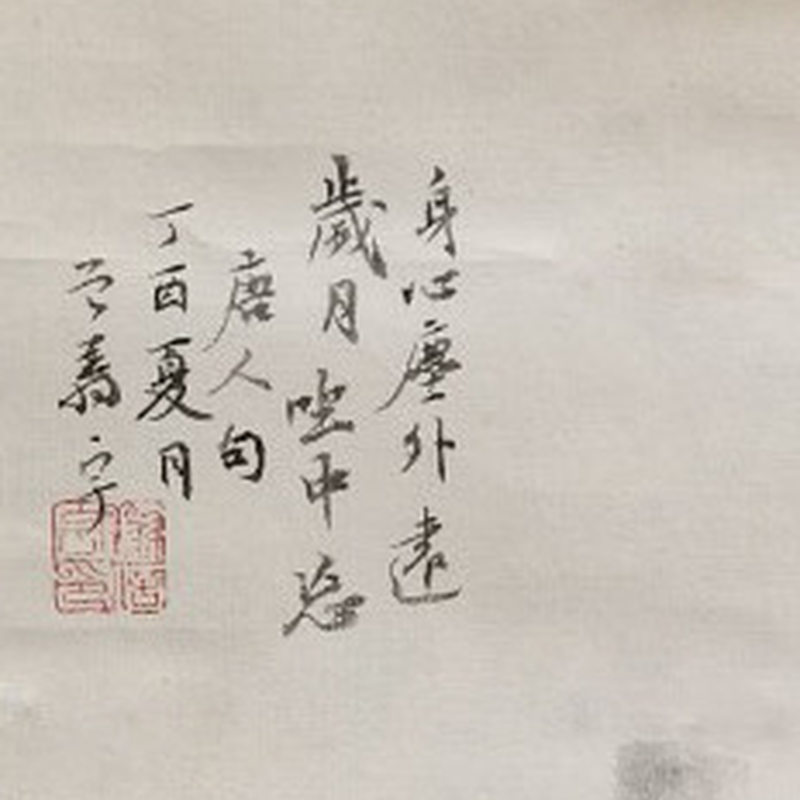 身心塵外遠
歲月坐中忘
唐人句
丁酉夏月